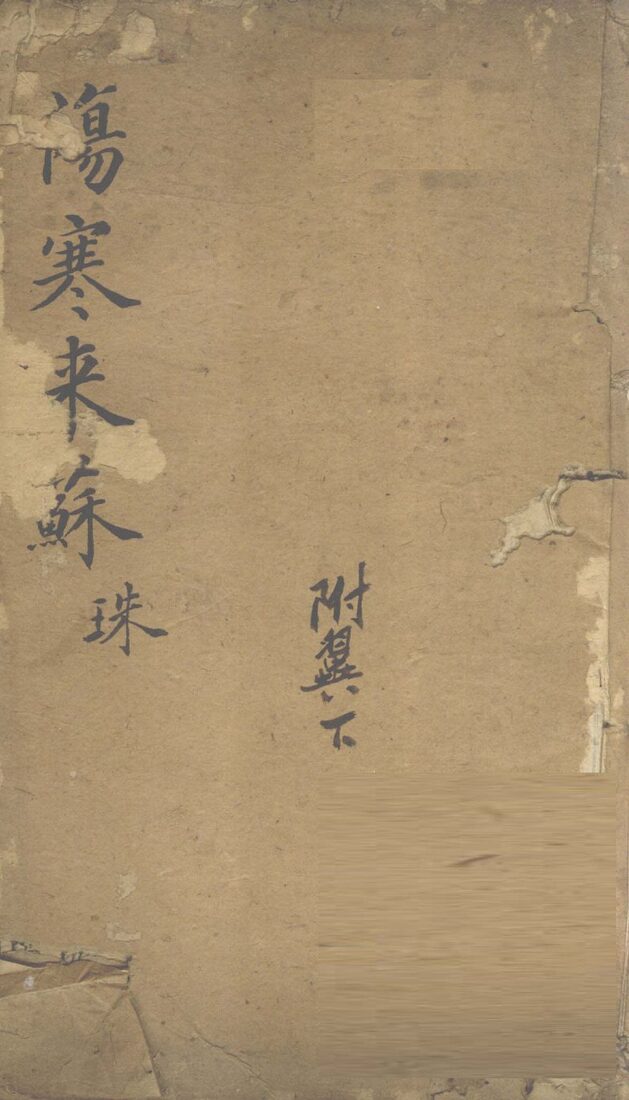 傷寒来蘇珠
附翼下